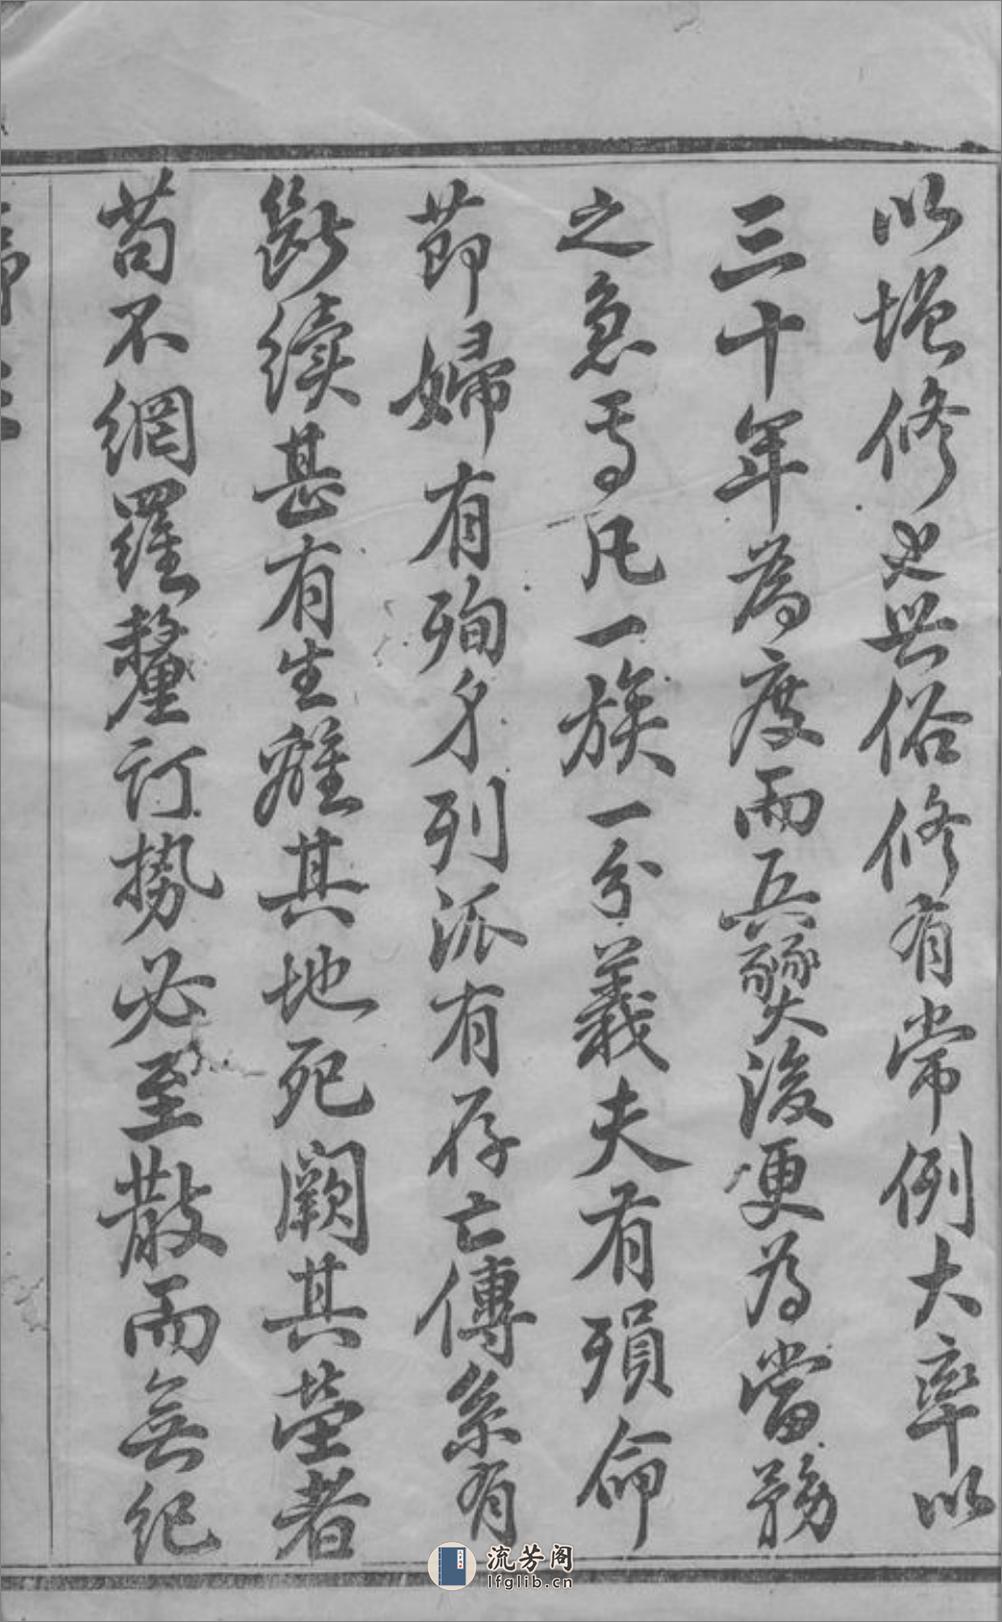 以增修也世俗修有常例大率以
三十年為度而兵燹後更為當務
之急焉凡一族一分義夫有殞命
節婦有殉身列派有存亡傳系有
斷續甚有生離其地死闕其塋者
苟不網羅釐訂勢必至散而無紀
流芳阁
lfglib.cn